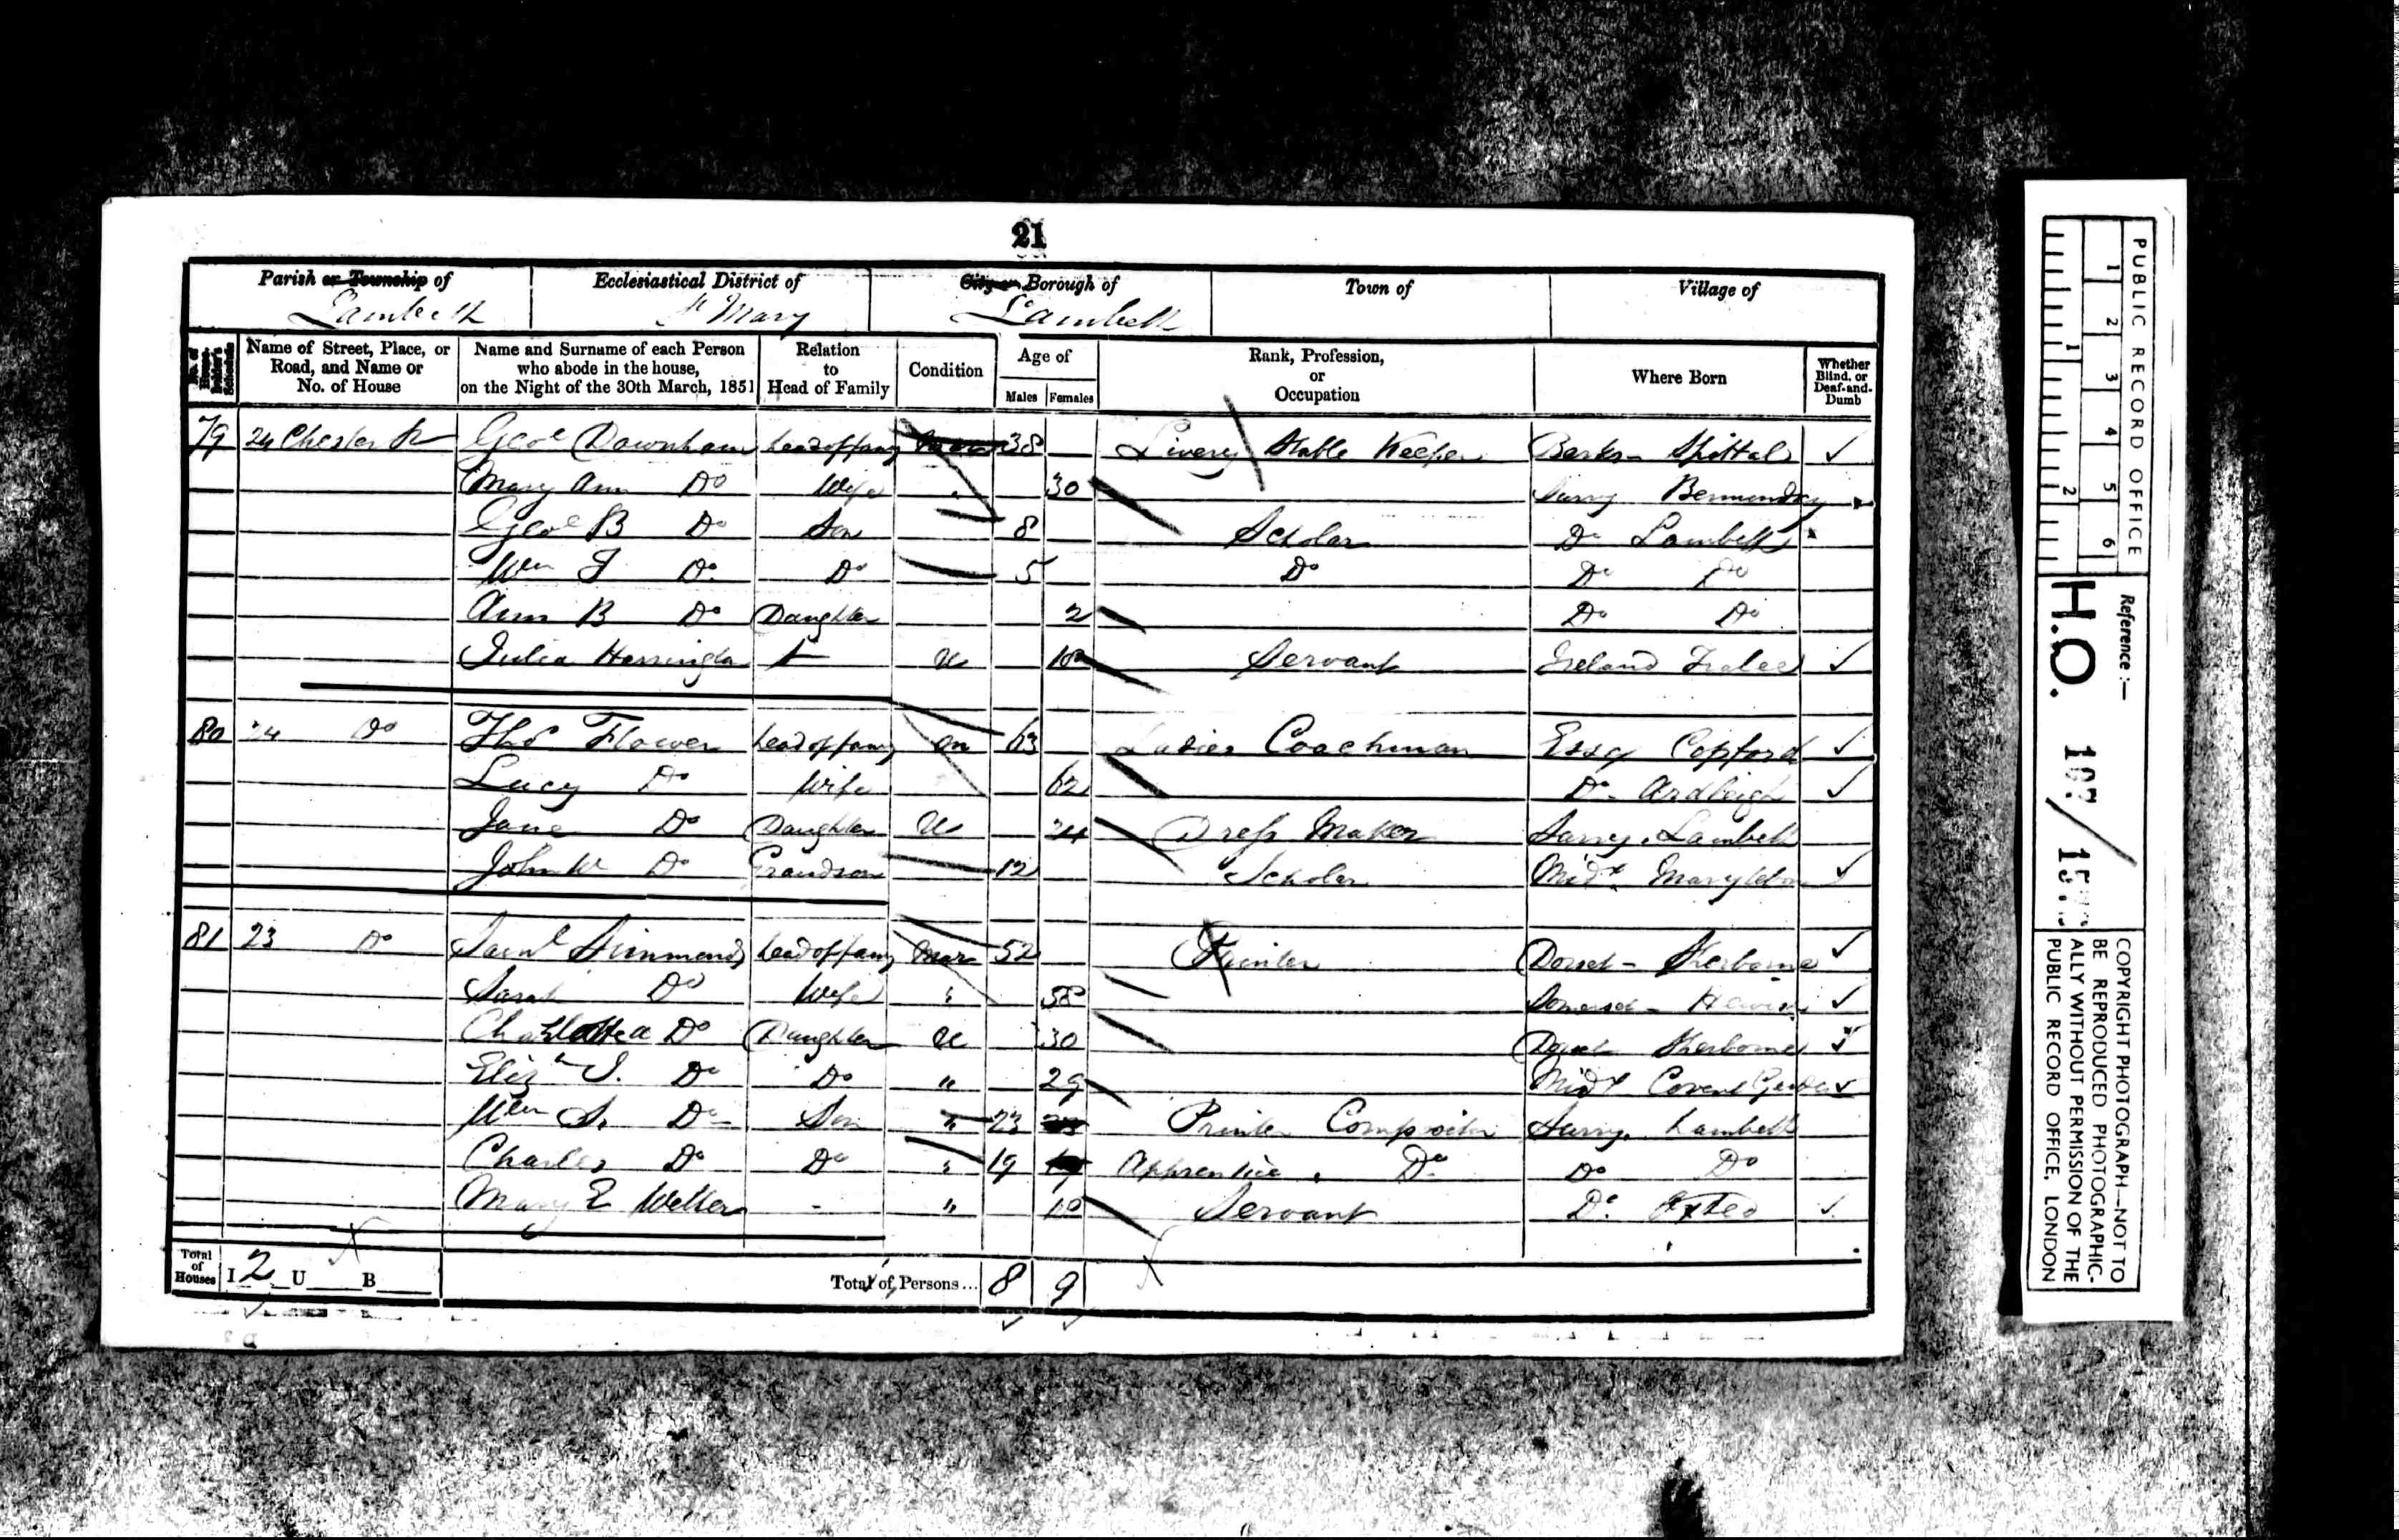 21
Parish or Township of Ecclesiastical District of City or Borough of Town of Village of
Lambeth St Mary Lambeth
No. of House-holder's Schedule Name of Street, Place, or Road, and Name or No. of House Name and Surname of each Person who abode in the house, on the Night of the 30th March, 1851 Relation to Head of Family Condition Age of Males Females Rank, Profession, or Occupation Where Born Whether Blind, or Deaf-and-Dumb
79 24 Chester Geoe Downham head of famy 38 Livery Stable Keeper Berks - Spittal
Mary Ann Do Wife 30 Surry Bermondsy
Geoe B Do Son 8 Scholar Do Lambeth
Wm F Do Do 5 Do Do Do
Ann B Do Daughter 2 Do Do
Julia Herrington U Servant Ireland Tralee
80 24 Do Thos Flower head of famy 63 Ladies Coachman Essx Copford
Lucy Do Wife 62 Do Ardleigh
Jane Do Daughter U 24 Dress Maker Surry. Lambeth
John W Do Grandson 12 Scholar Midx Marylebon
81 23 Do Saml Simmonds head of famy Mar 52 Dorset - Sherborne
Sarah Do Wife " 58 Somerset -
Do Daughter U 30 Dorset Sherborne
Elizh S. Do Do " 29 Midx Covent Garden
Wm S. Do Son " 23 Printer Compositor Surry. Lambeth
Charles Do Do " 19 Apprentice. Do Do Do
Mary E Weller - " Servant Do. Oxted
Total of Houses I 2 U B Total of Persons... 8 9
PUBLIC RECORD OFFICE
1 2 3 4 5 6
1 2
Reference:—
H.O. 107/
COPYRIGHT PHOTOGRAPH—NOT TO
BE REPRODUCED PHOTOGRAPHIC-
ALLY WITHOUT PERMISSION OF THE
PUBLIC RECORD OFFICE, LONDON